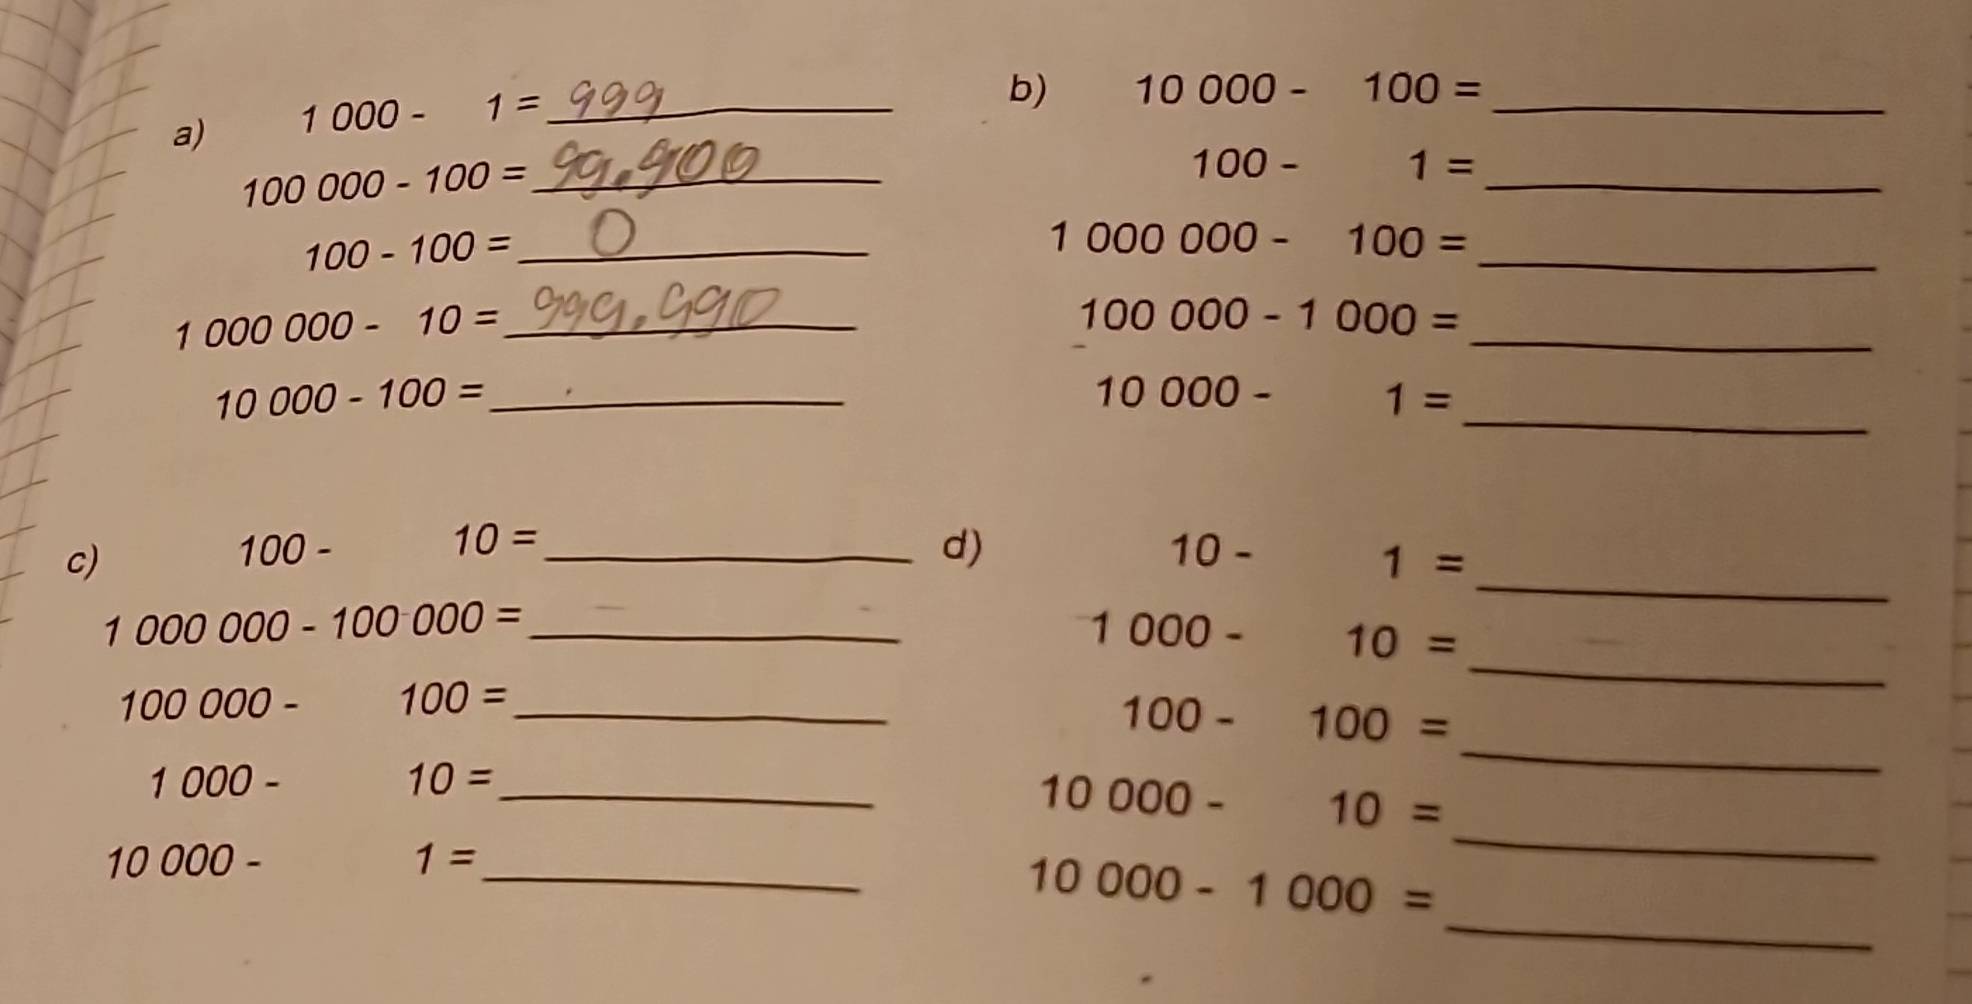 a) 1 000 - 1 = 999
100 000 - 100 = 99.900
100 - 100 = 0
1 000 000 - 10 = 999.990
10 000 - 100 =
b) 10 000 - 100 =
100 - 1 =
1 000 000 - 100 =
100 000 - 1 000 =
10 000 - 1 =
c) 100 - 10 =
1 000 000 - 100 000 =
100 000 - 100 =
1 000 - 10 =
10 000 - 1 =
d) 10 - 1 =
1 000 - 10 =
100 - 100 =
10 000 - 10 =
10 000 - 1 000 =